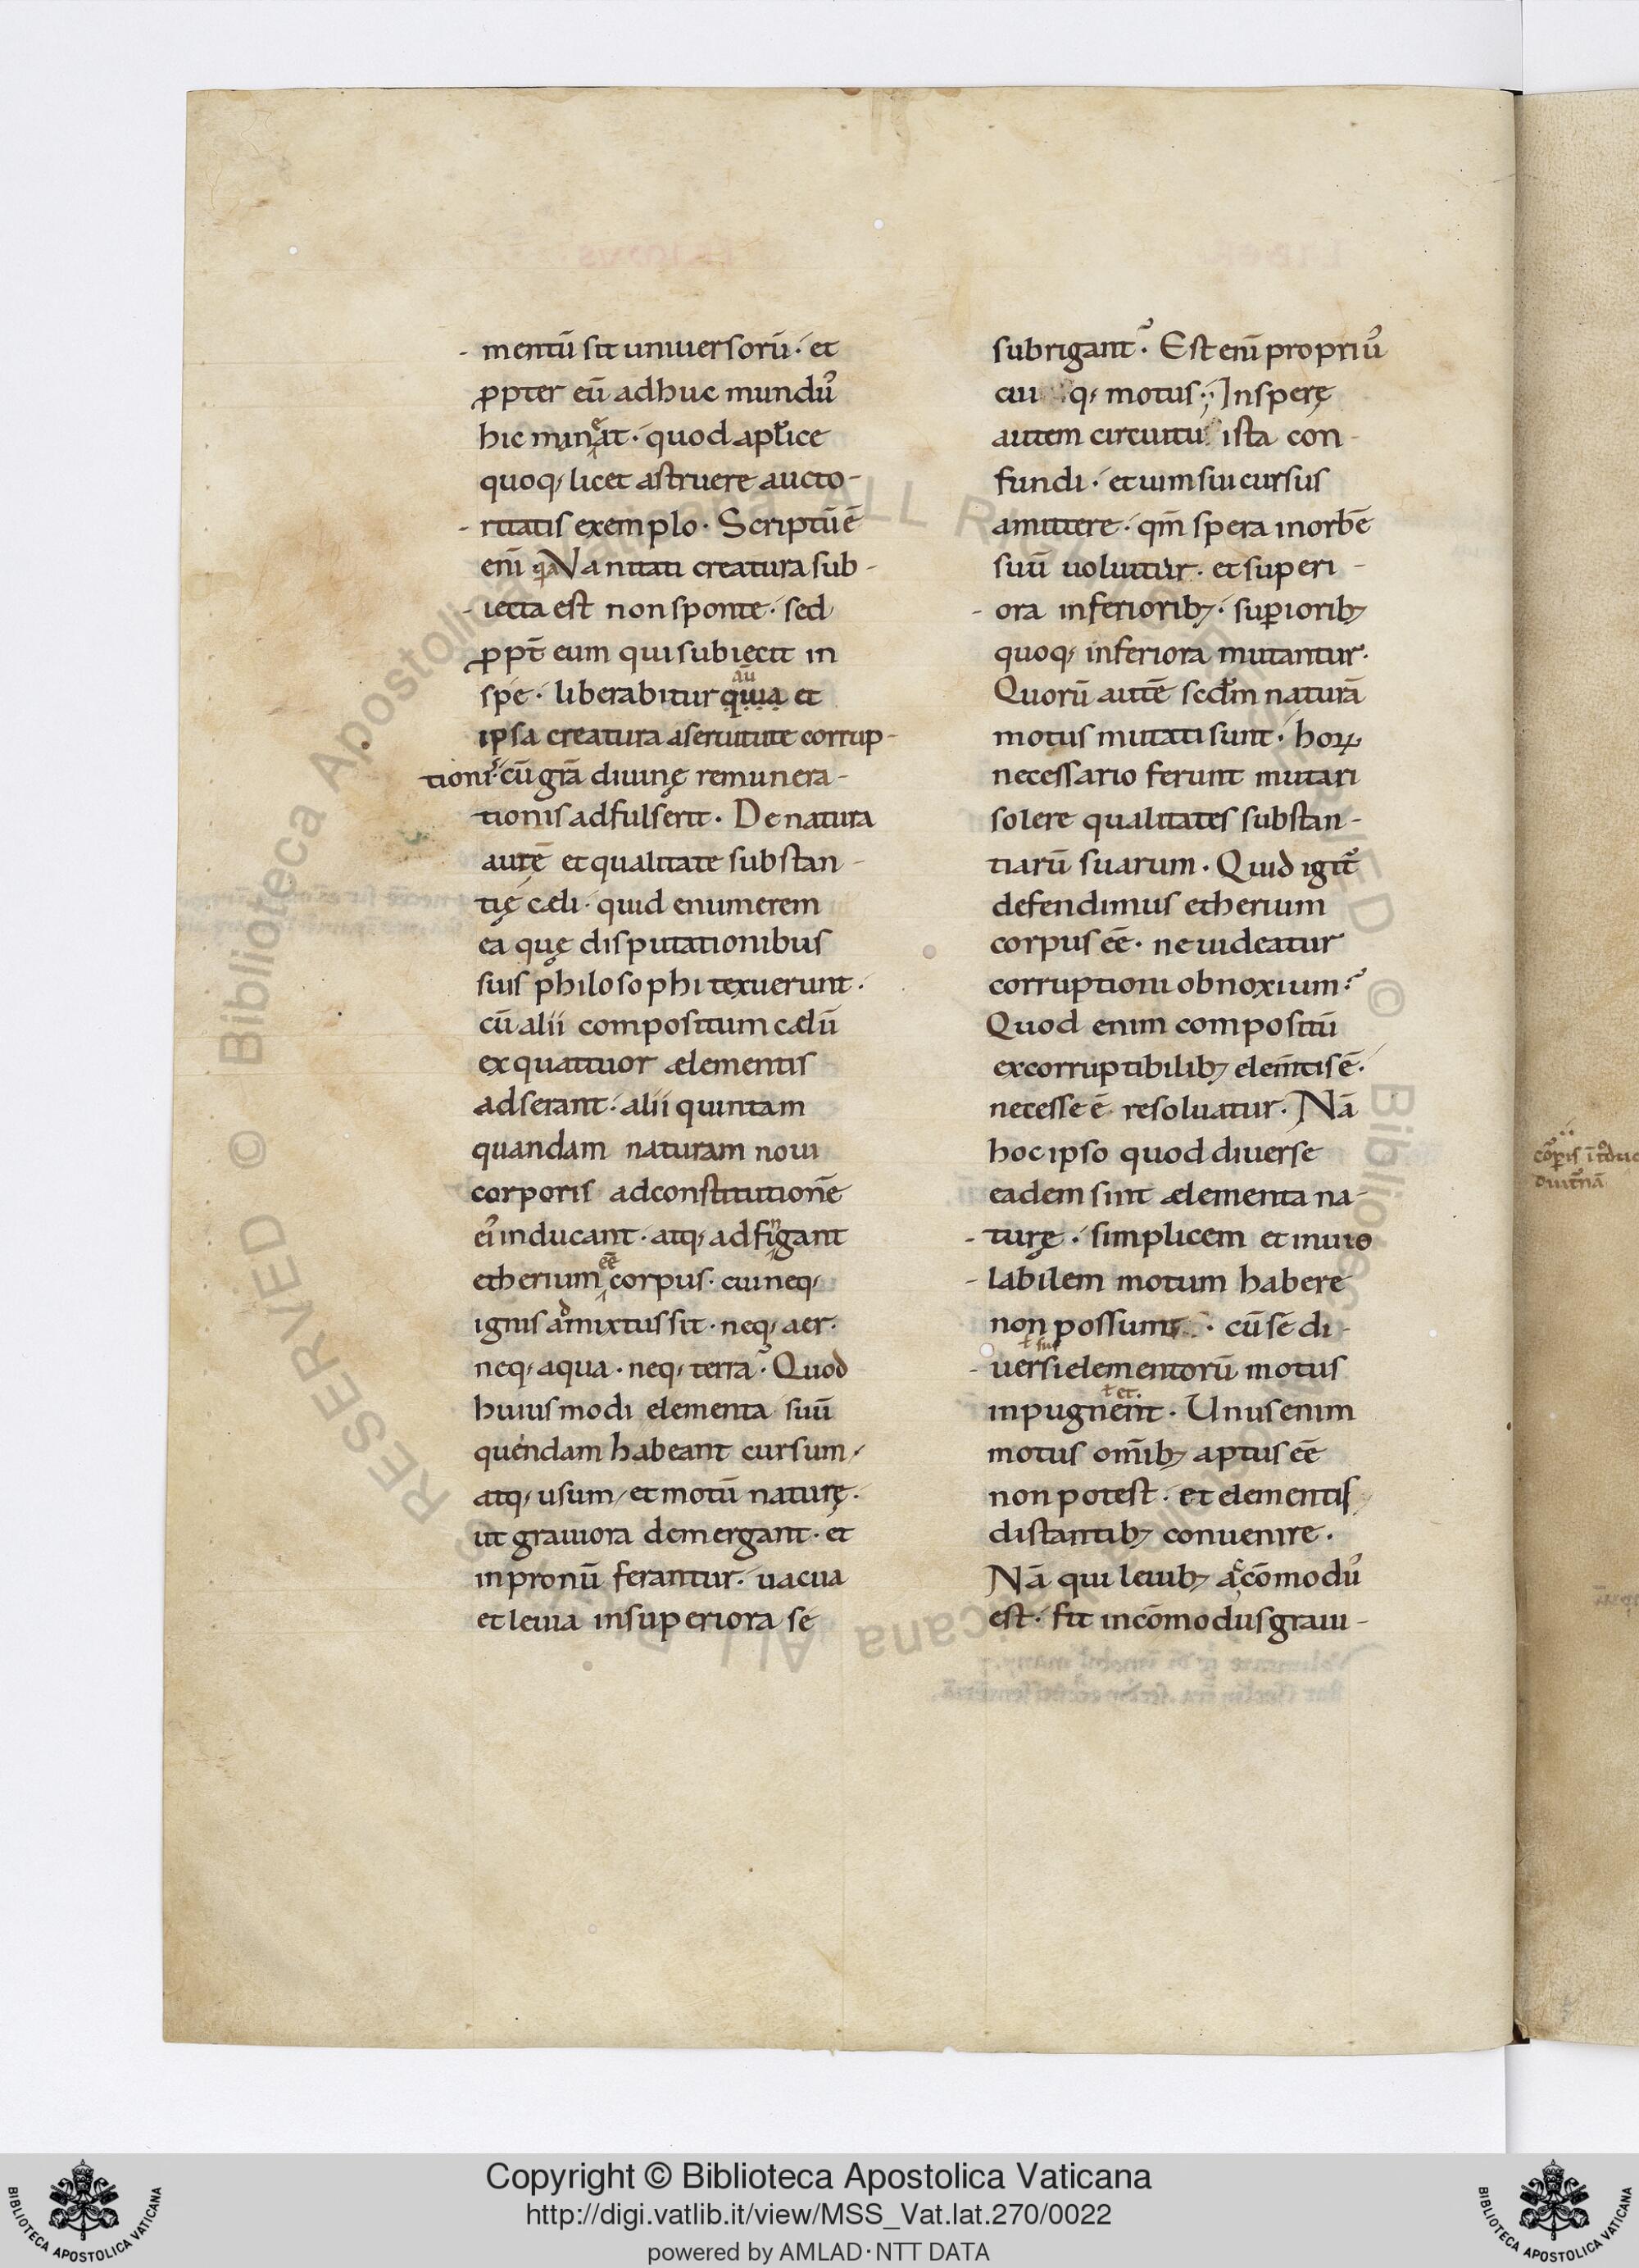 mentū sit uniuersorū · et
ꝓpter eū adhuc mundū
hic minͤat · quod aptice
quoq; licet astruere aucto-
ritatis exemplo · Scriptū ē
eni qa Vanitati creatura sub-
iecta est non sponte · sed
ꝓpt̄ eum qui subiecit in
spe · liberabitur quia et
aū
ipsa creatura a seruitute corrup-
tionis cū gr̄a diuinę remunera-
tionis adfulserit · De natura
autē et qualitate substan-
tię cæli · quid enumerem
ea quę disputationibus
suis philosophi texuerunt ·
cū alii compositum cælū
ex quattuor ælementis
adserant · alii quintam
quandam naturam noui
corporis ad constitutionē
ei' inducant · atq; adfingant
etherium ēē corpus · cui neq;
ignis admixtus sit · neq; aer ·
neq; aqua · neq; terra · Quod
huiusmodi elementa suū
quendam habeant cursum
atq; usum et motū naturę ·
ut grauiora demergant · et
in pronū ferantur · uacua
et leuia in superiora se
subrigant · Est enī propriū
cui q; motus · In sperę
autem circuitu ista con-
fundi · et uim sui cursus
amittere · qm̄ spera in orbē
suū uoluitur · et superi-
ora inferiorib; · suꝑiorib;
quoq; inferiora mutantur ·
Quorū autē scdm̄ naturā
motus mutati sunt · hoꝝ
necessario ferunt mutari
solere qualitates substan-
tiarū suarum · Quid igit̄
defendimus etherium
corpus ēē · ne uideatur
corruptioni obnoxium?
Quod enim compositū
ex corruptibilib; elem̄tis ē ·
necesse ē resoluatur · Nā
hoc ipso quod diuerse
eadem sint ælementa na-
turę · simplicem et inuio
labilem motum habere
non possunt · cū se di-
ł sui
uersi elementorū motus
ł et.
inpugnent · Unus enim
motus om̄ib; aptus ēē
non potest · et elementis
distantib; conuenire ·
Nā qui leuib; accōmodū
est · fit incōmodus graui-
Copyright © Biblioteca Apostolica Vaticana
http://digi.vatlib.it/view/MSS_Vat.lat.270/0022
powered by AMLAD·NTT DATA
BIBLIOTECA APOSTOLICA VATICANA
BIBLIOTECA APOSTOLICA VATICANA